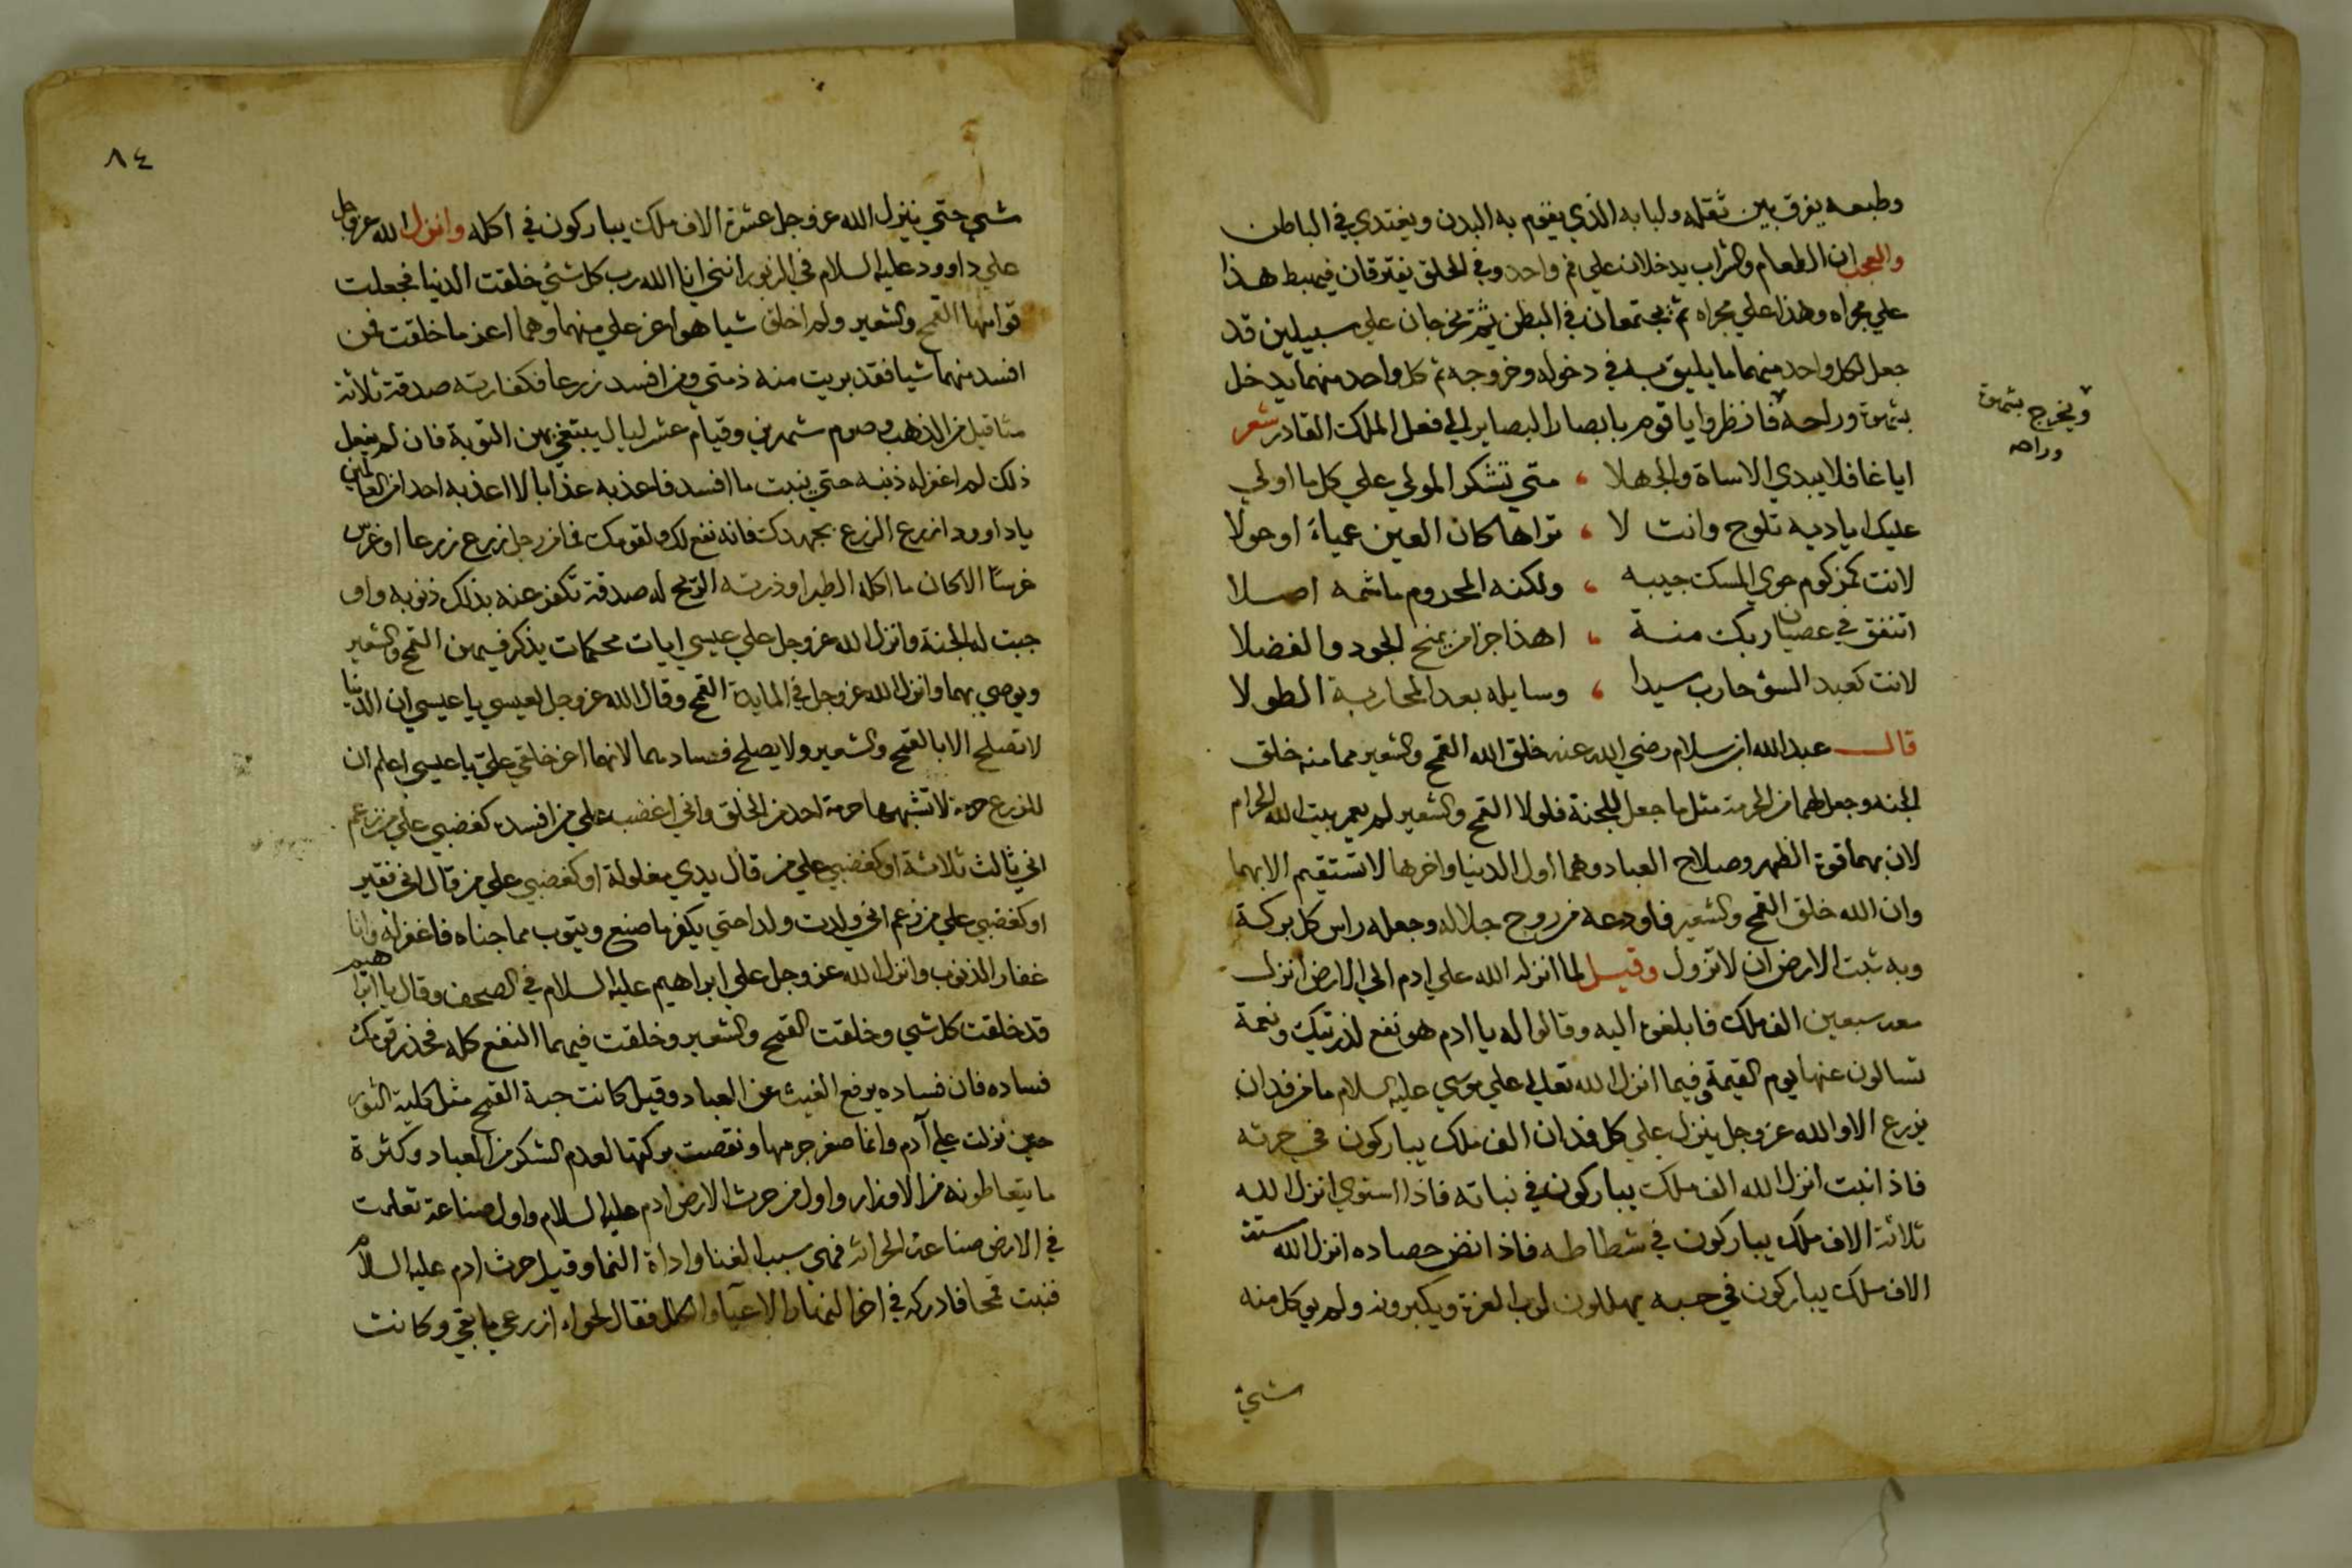 وطبعه يفرق بين ثقله ولبابه الذي يقوم به البدن ويغتدي في الباطن
والعجب ان الطعام والشراب يدخلان علي فم واحد وفي الحلق يفترقان فيهبط هذا
علي مجراه وهذا علي مجراه ثم يجتمعان في البطن ثم يخرجان علي سبيلين قد
جعل لكل واحد منهما ما يليق به في دخوله وخروجه ثم كل واحد منهما يدخل
بشهوة وراحة فانظروا يا قوم بابصار البصاير الي فعل الملك القادر شعر
ويخرج بشهوة
وراحه
ايا غافلا يبدي الاساة والجهلا ، متي تشكر المولي علي كل ما اولي
عليك اياديه تلوح وانت لا ، تراها كان العين عمياء او حولا
لانت كمزكوم حوي المسك جيبه ، ولكنه المحروم ما شمه اصلا
اتنفق في عصيان ربك منة ، اهذا جزا من يمنح الجود والفضلا
لانت كعبد السؤ حارب سيدا ، وسايله بعد المحاربة الطولا
قال عبد الله ابن سلام رضي الله عنه خلق الله القمح والشعير مما منه خلق
الجنة وجعل لهما من الحرمة مثل ما جعل للجنة فلولا القمح والشعير لم يعمر بيت الله الحرام
لان بهما قوة الظهر وصلاح العباد وهما اول الدنيا واخرها لا تستقيم الا بهما
وان الله خلق القمح والشعير فاودعه من روح جلاله وجعله راس كل بركة
وبه ثبت الارض ان لا تزول وقيل لما انزل الله علي ادم الي الارض انزل
معه سبعين الف ملك فابلغوه اليه وقالوا له يا ادم هو نفع لذريتك ونعمة
تسالون عنها يوم القيمة وفيما انزل الله تعالي علي موسي عليه السلام ما من فدان
يزرع الا والله عز وجل ينزل علي كل فدان الف ملك يباركون في حرثه
فاذا نبت انزل الله الف ملك يباركون في نباته فاذا استوي انزل الله
ثلاثة الاف ملك يباركون في شطاطه فاذا انض حصاده انزل الله ستة
الاف ملك يباركون في حبه يهللون لرب العزة ويكبرونه ولم يوكل منه
شيء
٨٤
شيء حتي ينزل الله عز وجل عشرة الاف ملك يباركون في اكله وانزل الله عز وجل
علي داوود عليه السلام في الزبور انني انا الله رب كل شيء خلقت الدنيا فجعلت
قوامها القمح والشعير ولم اخلق شيا هو اعز علي منهما وهما اعز ما خلقت فمن
افسد منهما شيا فقد بريت منه ذمتي ومن افسد زرعا فكفارته صدقة ثلاثة
مثاقيل من الذهب وصوم شهرين وقيام عشر ليال يبتغي بهن التوبة فان لم يفعل
ذلك لم اغفر له ذنبه حتي ينبت ما افسد فاعذبه عذابا لا اعذبه احدا من العالمين
يا داوود ازرع الزرع بجهدك فانه نفع لك ولقومك فما من رجل زرع زرعا او غرس
غرسا الا كان ما اكله الطير او ذرته الريح له صدقة تكفر عنه بذلك ذنوبه واو
جبت له الجنة وانزل الله عز وجل علي عيسي ايات محكمات يذكر فيهن القمح والشعير
ويوصي بهما وانزل الله عز وجل في المايدة القمح وقال الله عز وجل لعيسي يا عيسي ان الدنيا
لا تصلح الا بالقمح والشعير ولا يصلح فسادهما لانهما اعز خلقي علي يا عيسي اعلم ان
للزرع حرمة لا تشبهها حرمة احد من الخلق واني اغضب علي من افسده كغضبي علي من زعم
اني ثالث ثلاثة او كغضبي علي من قال يدي مغلولة او كغضبي علي من قال اني فقير
او كغضبي علي من زعم اني ولدت ولدا حتي يكفر ما صنع ويتوب مما جناه فاغفر له وانا
غفار الذنوب وانزل الله عز وجل علي ابراهيم عليه السلام في الصحف وقال يا ابراهيم
قد خلقت كل شي وخلقت القمح والشعير وخلقت فيهما النفع كله فحذر قومك
فساده فان فساده يرفع الغيث عن العباد وقيل كانت حبة القمح مثل كلية الثور
حين نزلت علي آدم وانما صغر جرمها ونقصت بركتها لعدم الشكر من العباد وكثرة
ما يتعاطونه من الاوزار واول من حرث الارض ادم عليه السلام واول صناعة تعلمت
في الارض صناعة الحراثة فهي سبب الغنا واداة النما وقيل حرث ادم عليه السلام
فنبت قمحا فادركه في اخر النهار الاعيا والكلل فقال لحواء ازرعي ما بقي وكانت